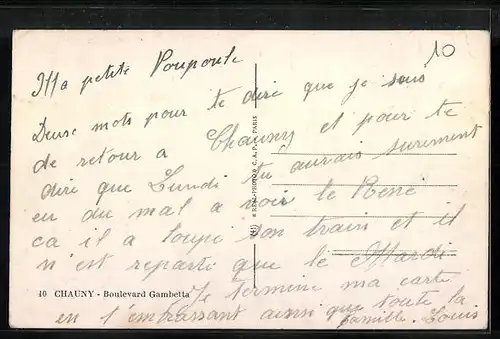 10
Ma petite Poupoule
Deux mots pour te dire que je suis
de retour a Chauny et pour te
dire que Lundi tu aurais surement
eu du mal a voir le René
ca il a loupé son train et il
n'est reparti que le Mardi
Je termine ma carte
en t'embrassant ainsi que toute la
famille. Louis
10 CHAUNY - Boulevard Gambetta
PARIS